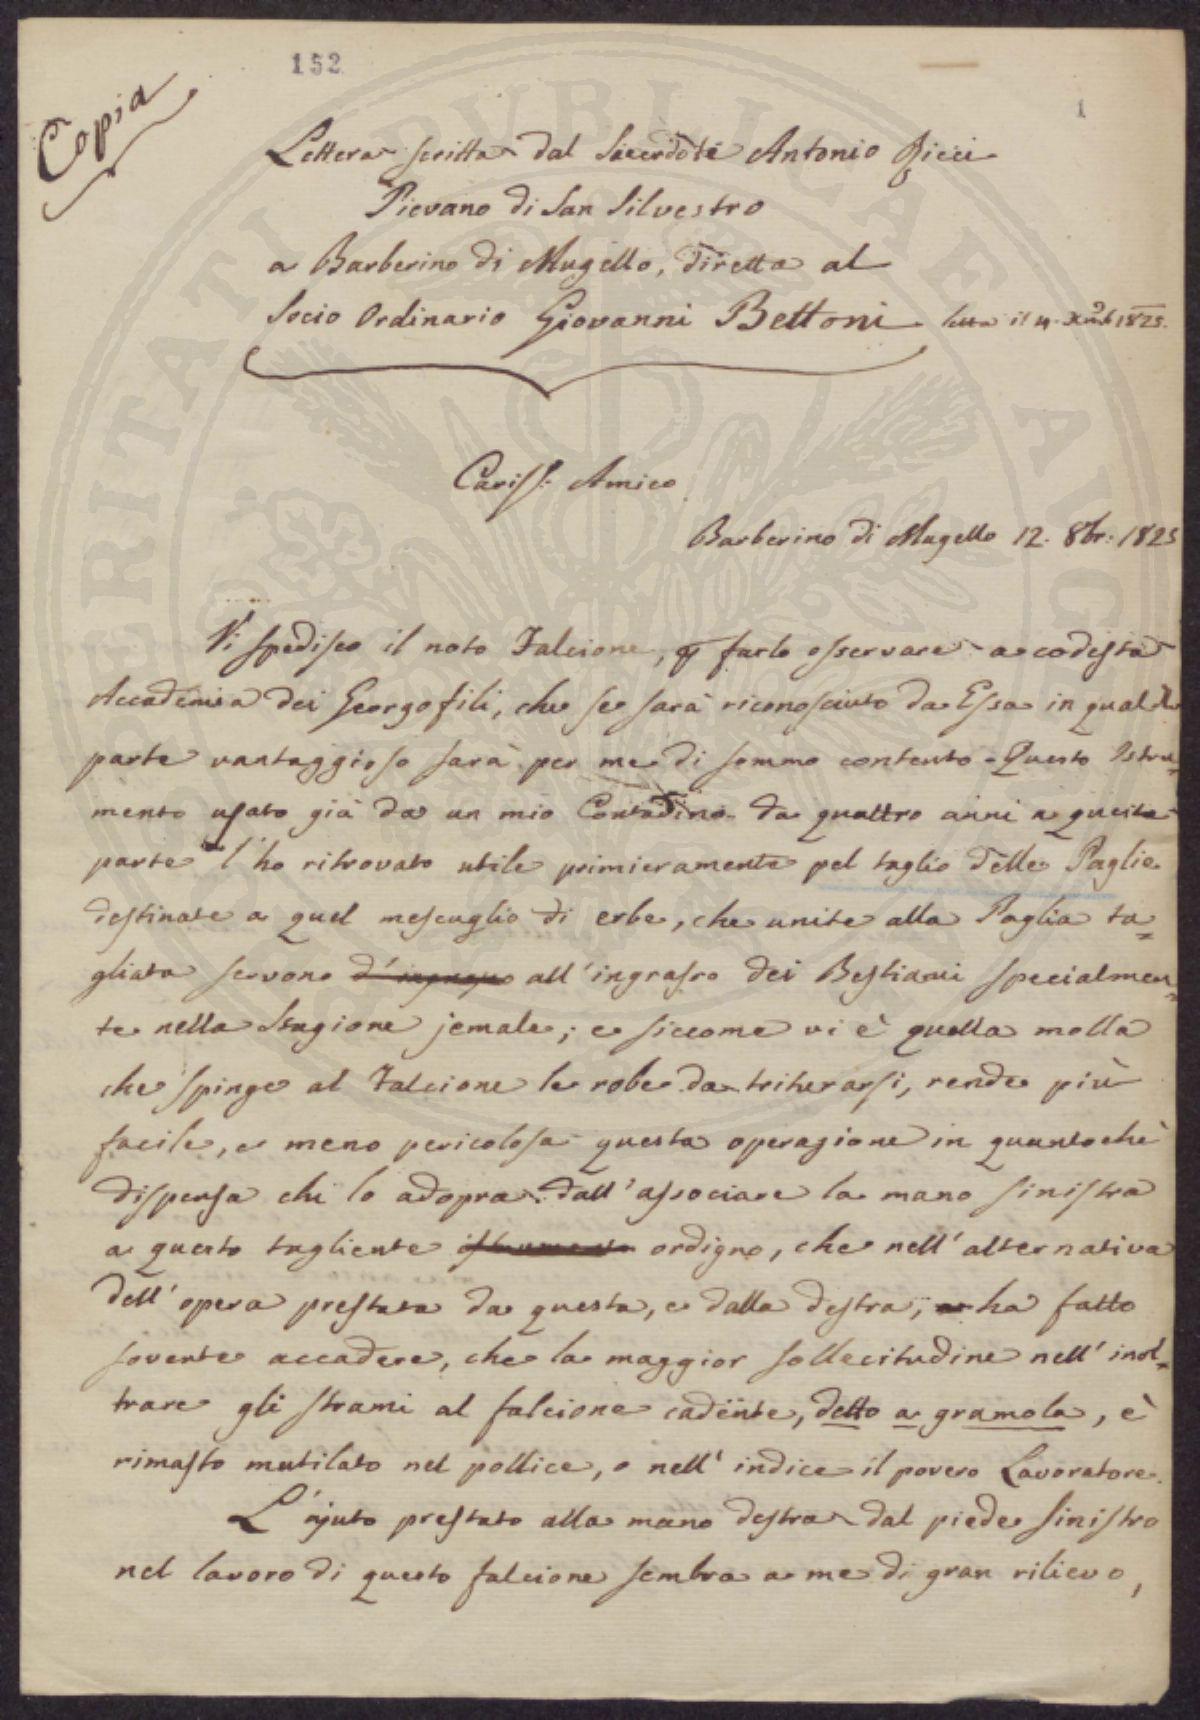 152
1
Copia
Lettera scritta dal Sacerdote Antonio Ricci
Pievano di San Silvestro
a Barberino di Mugello, diretta al
Socio Ordinario Giovanni Bettoni letta il 4. Xmb 1825.
Cariss: Amico
Barberino di Mugello 12. 8br: 1825
Vi spedisco il noto Falcione, p farlo osservare a codesta
Accademia dei Georgofili, che se sarà riconosciuto da Essa in qualche
parte vantaggioso sarà per me di sommo contento. Questo Istru=
mento usato già da un mio Contadino da quattro anni a questa
parte l'ho ritrovato utile primieramente pel taglio delle Paglie
destinate a quel mescuglio di erbe, che unite alla Paglia ta=
gliata servono d'ingrasso all'ingrasso dei Bestiami specialmen=
te nella Stagione jemale; e siccome vi è quella molla
che spinge al Falcione le robe da triturarsi, rende più
facile, e meno pericolosa questa operazione in quantochè
dispensa chi lo adopra dall'associare la mano sinistra
a questo tagliente istrumento ordigno, che nell'alternativa
dell'opera prestata da questa, e dalla destra, ha fatto
sovente accadere, che la maggior sollecitudine nell'inol=
trare gli strami al falcione cadente, detto a gramola, è
rimasto mutilato nel pollice, o nell'indice il povero Lavoratore.
L'ajuto prestato alla mano destra dal piede sinistro
nel lavoro di questo falcione sembra a me di gran rilievo,
PERITATI PUBLICAE AUGE